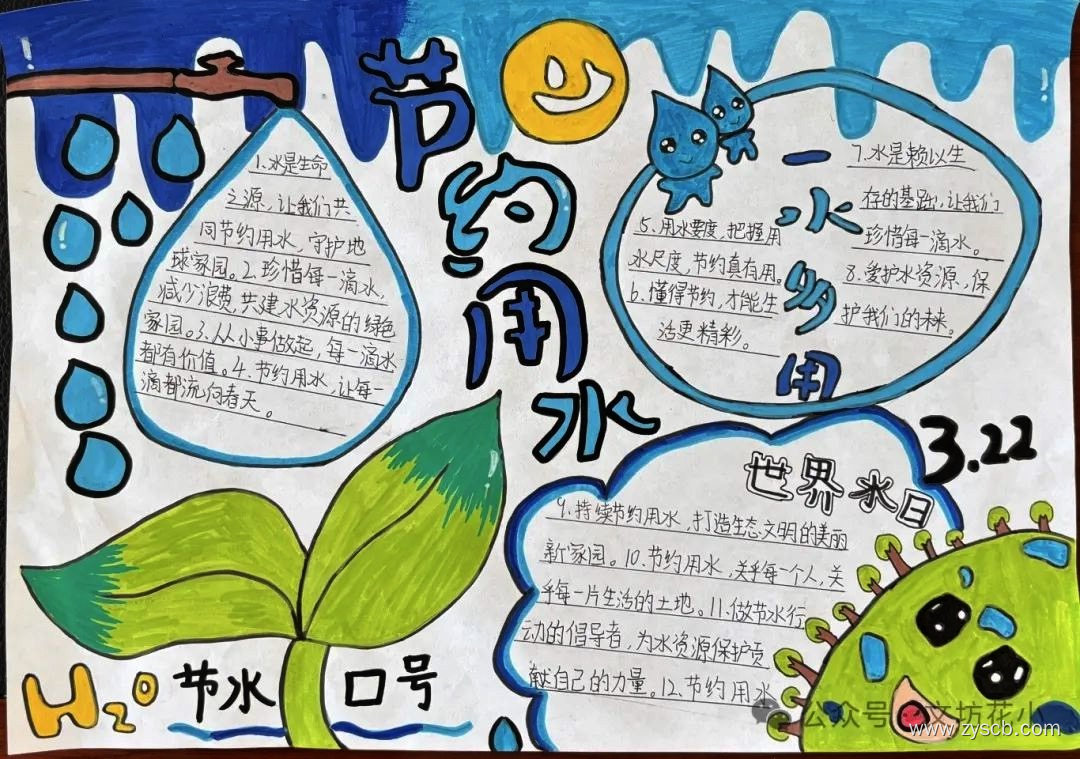 节约用水
1.水是生命
之源,让我们共
同节约用水,守护地
球家园。2.珍惜每一滴水,
减少浪费,共建水资源的绿色
家园。3.从小事做起,每一滴水
都有价值。4.节约用水,让每一
滴都流向春天。
一水多用
5.用水要度,把握用
水尺度,节约真有用。
6.懂得节约,才能生
活更精彩。
7.水是赖以生
存的基础,让我们
珍惜每一滴水。
8.爱护水资源,保
护我们的未来。
3.22
世界水日
9.持续节约用水,打造生态文明的美丽
新家园。10.节约用水,关乎每一个人,关
乎每一片生活的土地。11.做节水行
动的倡导者,为水资源保护贡
献自己的力量。12.节约用水
H2O 节水口号
公众号·文坊花小
www.zyscb.com